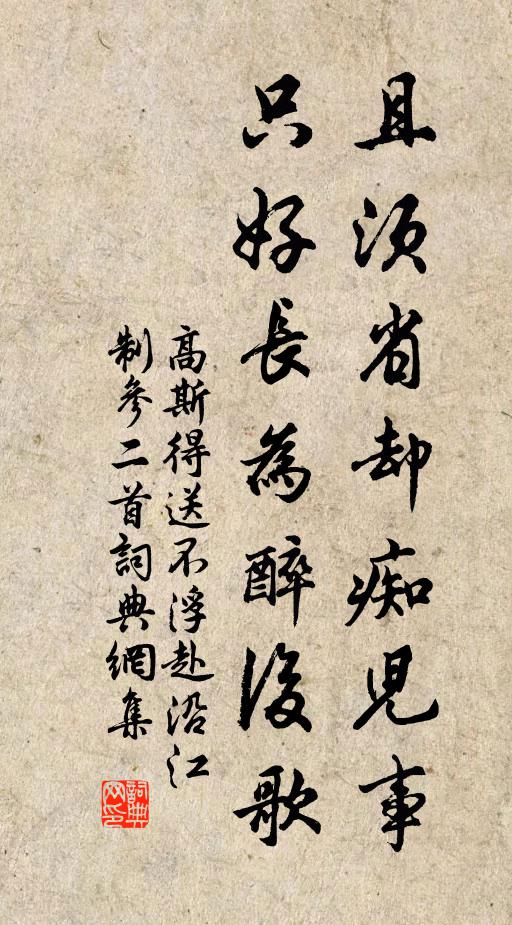 且須省却痴児事
只好長為醉後歌
高斯得送不浮赴沿江
制參二首詞典網集
詞典网印